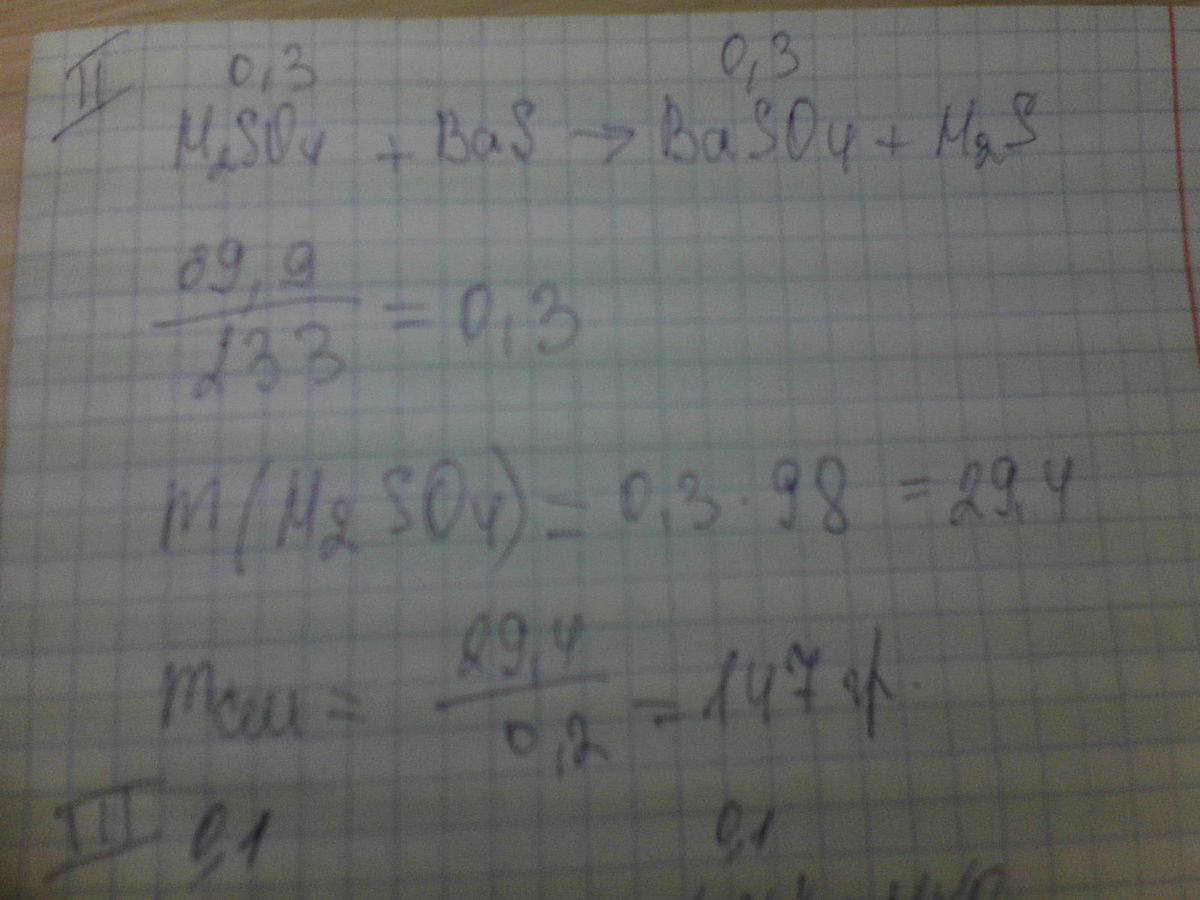 II
0,3 0,3
H2SO4 + BaS → BaSO4 + H2S
69,9
233
= 0,3
m(H2SO4) = 0,3 · 98 = 29,4
mсм =
29,4
0,2
= 147 гр.
III 0,1 0,1